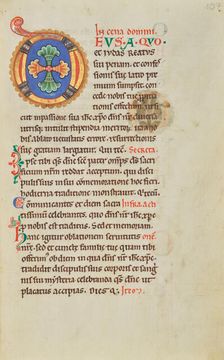 In cena domini.
EUS · A · QUO
et iudas reatus
sui penam. et confes
sionis sue latro pre
mium sumpsit. con
cede nobis tue pro
piciationis effectum. ut si
cut in passione sua ihc xpc dns nr diuersa
utrisque intulit stipendia meritorum. ita no
bis ablato uetustatis errore. resurrectionis
sue gratiam largiatur. Qui tecum. Secreta.
Ipse tibi qs dne sce pater omps ds sacri
ficium nrm reddat acceptum. qui disci
pulis suis in sui commemoratione hoc fieri
hodierna traditione monstrauit.
Communicantes et diem sacra Infra actionem
tissimum celebrantes. quo dns nr ihc xpc
pro nobis est traditus. Sed et memoriam.
Hanc igitur oblationem seruitutis
nre. sed et cuncte familie tue. quam tibi
offerimus ob diem in qua dns nr ihc xpc
tradidit discipulis suis corporis et sangui
nis sui mysteria celebranda. qs dne ut
placatus accipias. Diesque. Item.